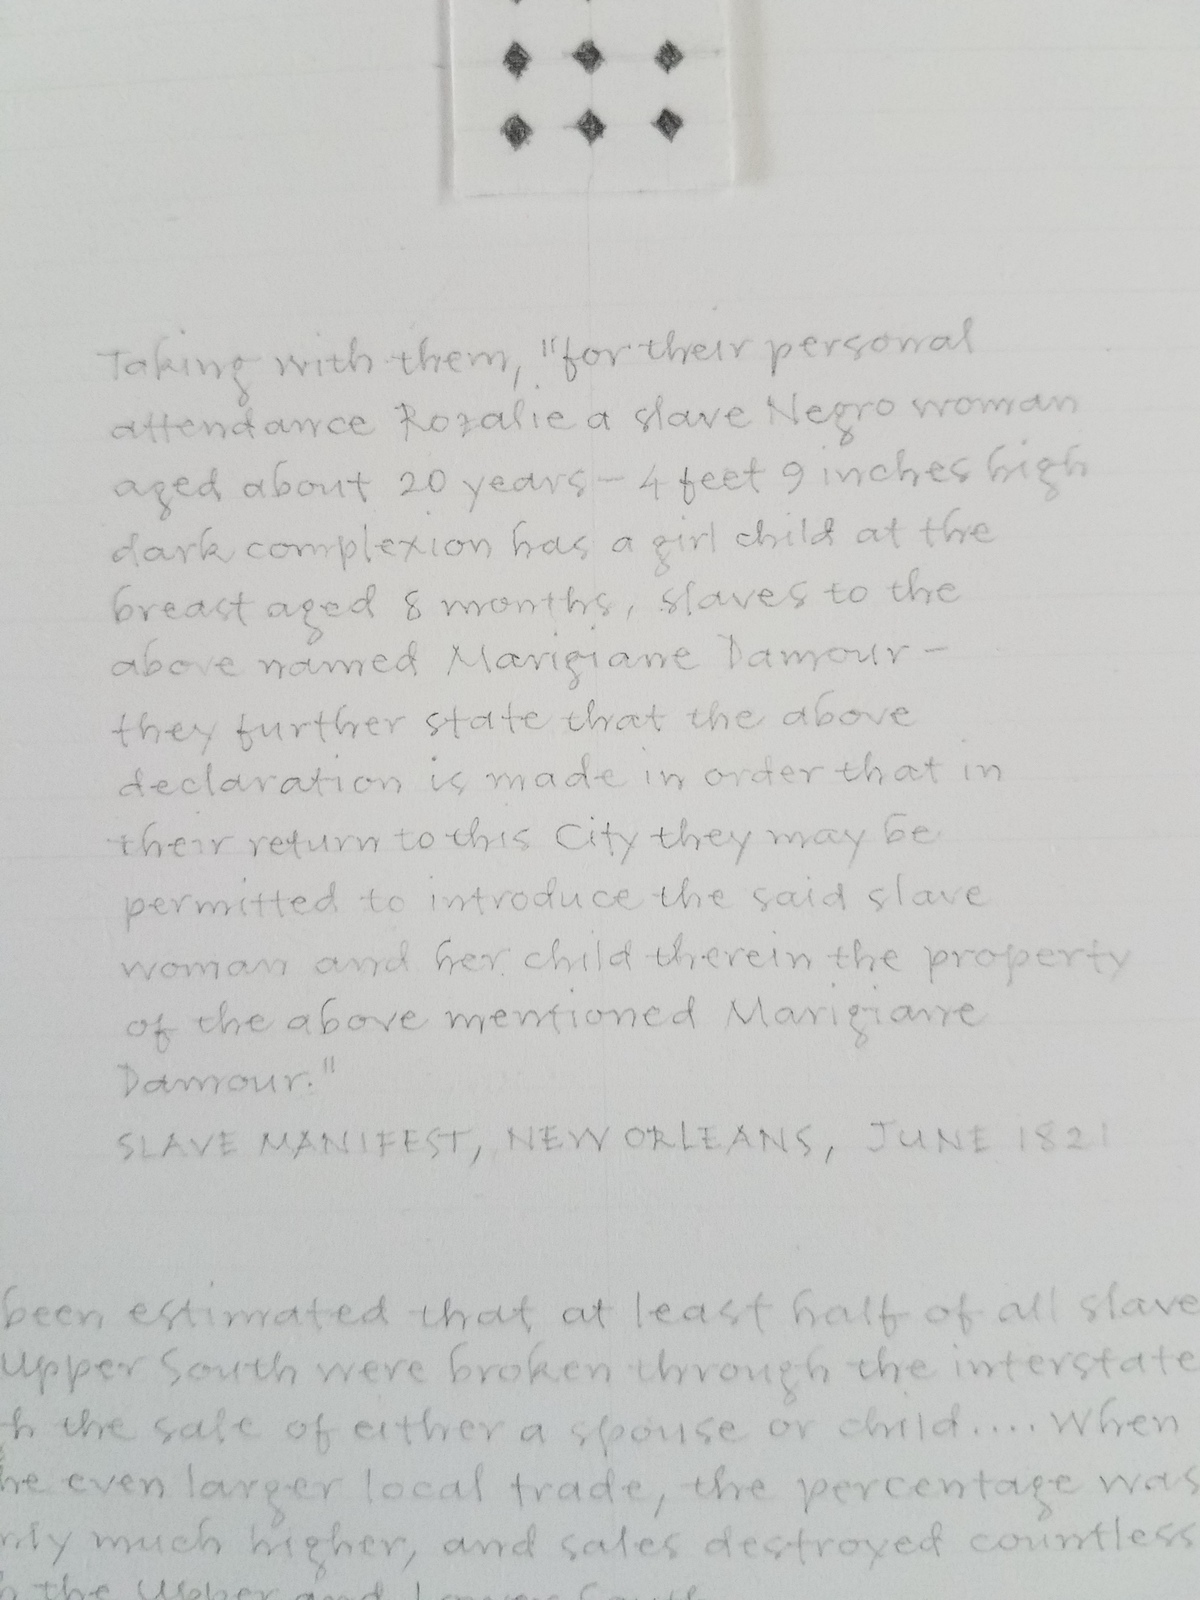 Taking with them, "for their personal
attendance Rozalie a slave Negro woman
aged about 20 years – 4 feet 9 inches high
dark complexion has a girl child at the
breast aged 8 months, slaves to the
above named Marigiane Damour –
they further state that the above
declaration is made in order that in
their return to this City they may be
permitted to introduce the said slave
woman and her child therein the property
of the above mentioned Marigiane
Damour."
SLAVE MANIFEST, NEW ORLEANS, JUNE 1821
been estimated that at least half of all slave
Upper South were broken through the interstate
h the sale of either a spouse or child.... When
he even larger local trade, the percentage was
nly much higher, and sales destroyed countless
h the Upper and Lower South